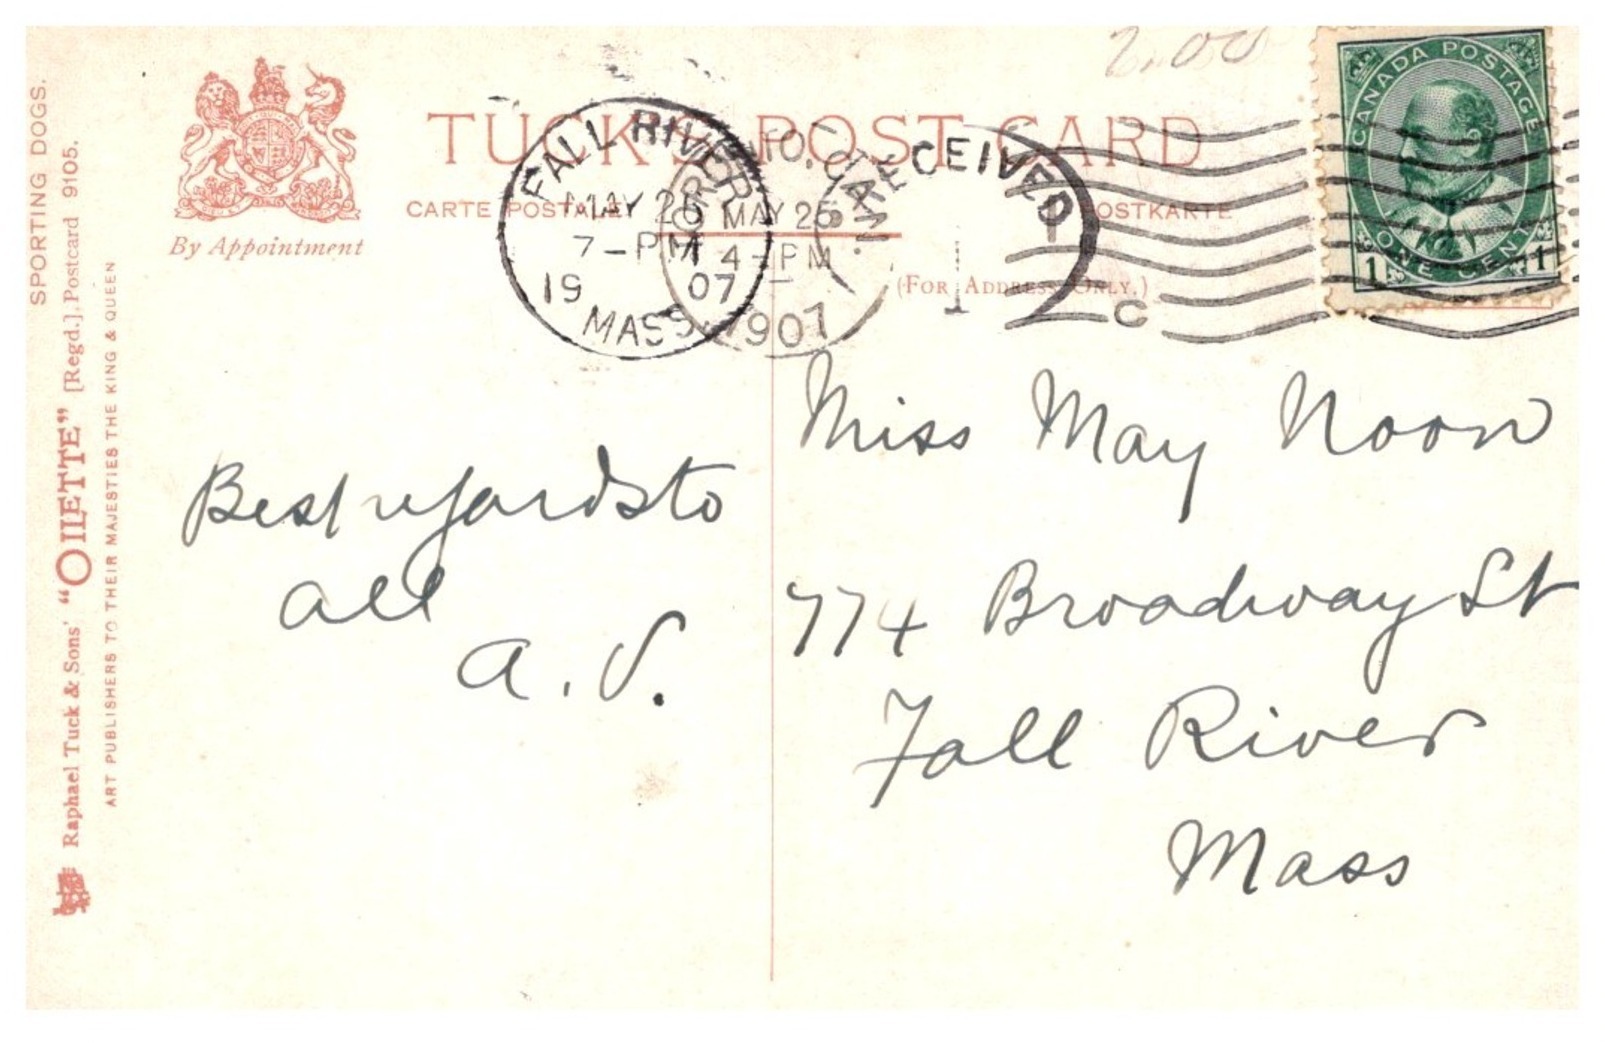 2.00
CANADA POSTAGE
1 ONE CENT 1
TUCK'S POST CARD
CARTE POSTALE POSTKARTE
(FOR ADDRESS ONLY.)
By Appointment
FALL RIVER
MAY 26
7-PM
1907
MASS.
TORONTO, CAN.
MAY 25
4-PM
1907
RECEIVED
1
C
SPORTING DOGS.
Raphael Tuck & Sons' "OILETTE" [Regd.], Postcard 9105.
ART PUBLISHERS TO THEIR MAJESTIES THE KING & QUEEN
Best regards to
all
a. S.
Miss May Noon
774 Broadway St
Fall River
Mass